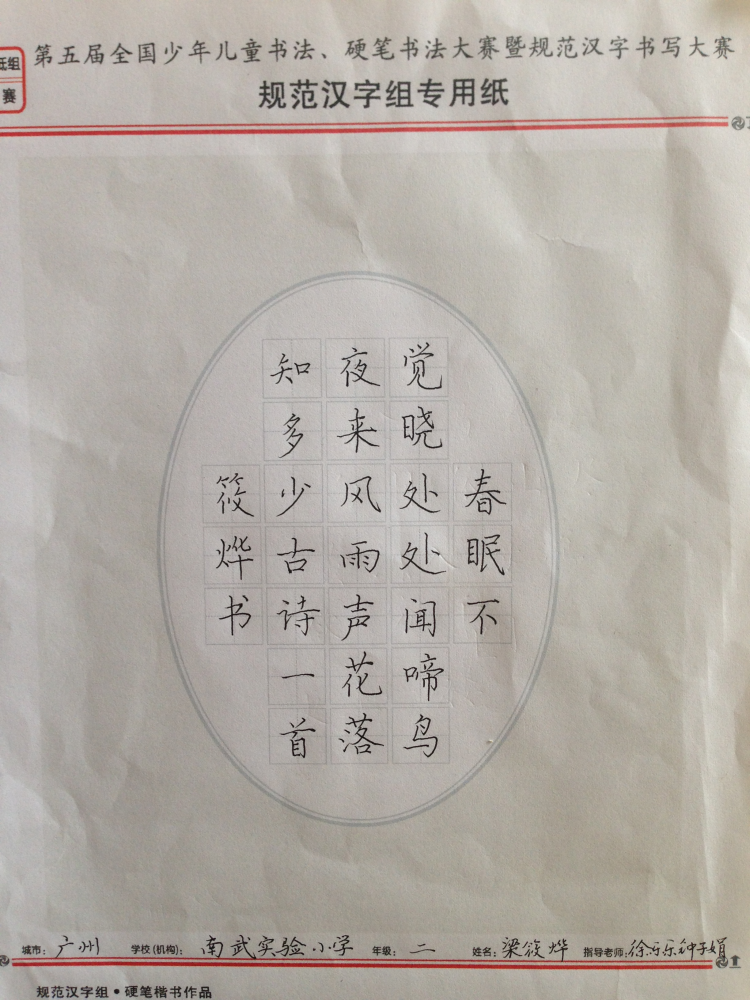 第五届全国少年儿童书法、硬笔书法大赛暨规范汉字书写大赛
低组
赛
规范汉字组专用纸
春眠不
觉晓处处闻啼鸟
夜来风雨声花落
知多少古诗一首
筱烨书
城市：广州 学校(机构)：南武实验小学 年级：二 姓名：梁筱烨 指导老师：徐乐乐钟子娟
规范汉字组•硬笔楷书作品